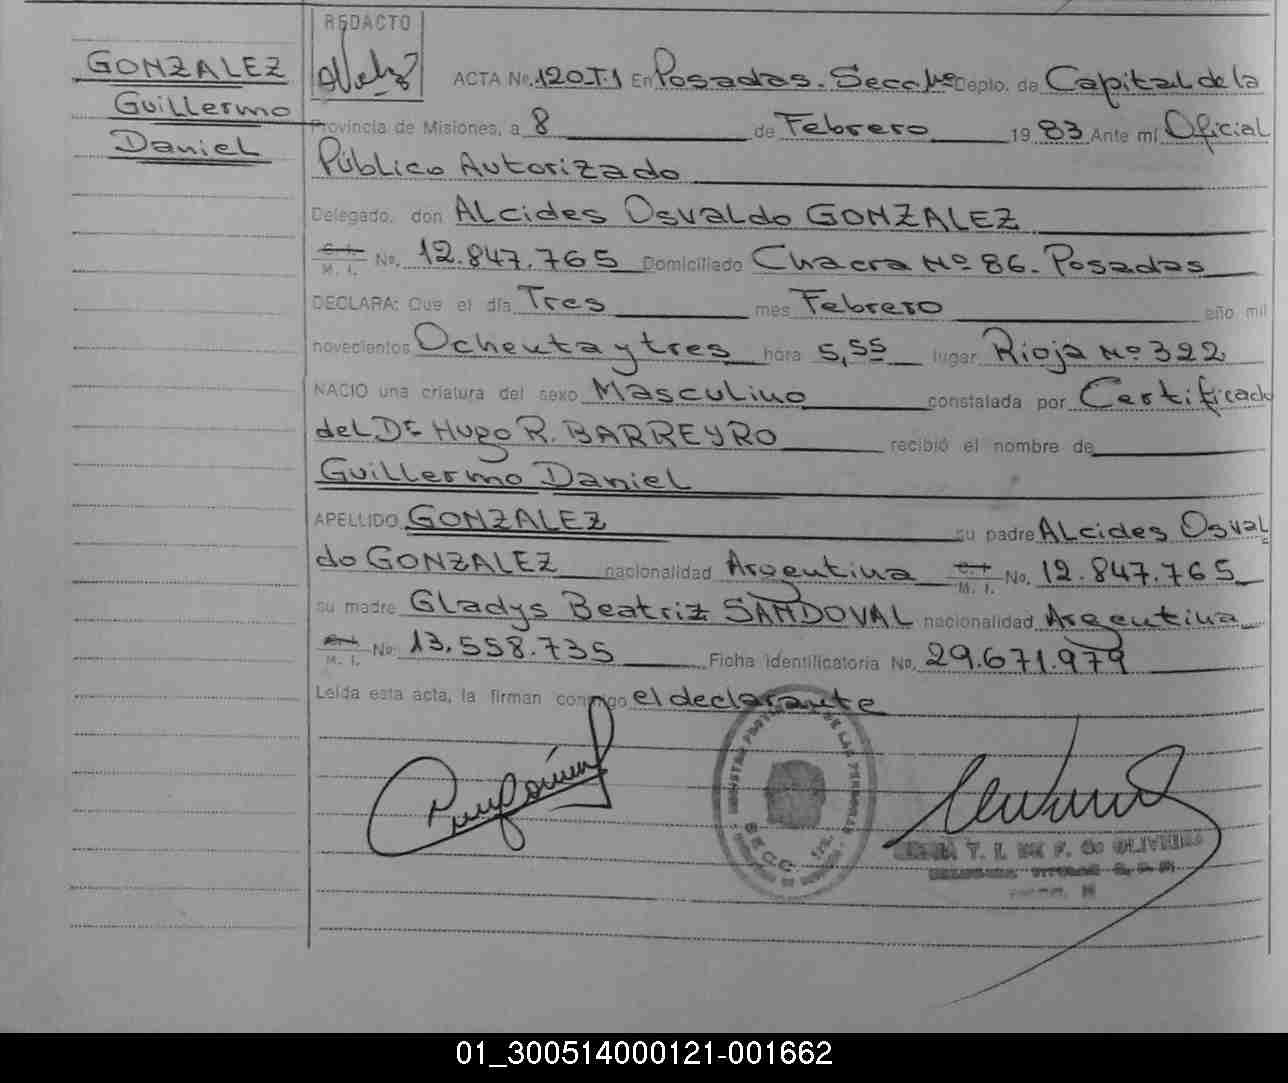 GONZALEZ
Guillermo
Daniel
REDACTO
ACTA No. 120 T.1 En Posadas. Secc. Depto. de Capital de la
Provincia de Misiones, a 8 de Febrero 19 83 Ante mí Oficial
Público Autorizado
Delegado, don ALcides Osvaldo GONZALEZ
C. I. M. I. No. 12.847.765 Domiciliado Chacra Nº 86. Posadas
DECLARA: Que el día Tres mes Febrero año mil
novecientos Ochenta y tres hora 5,55 lugar Rioja Nº 322
NACIO una criatura del sexo Masculino constatada por Certificado
del Dr Hugo R. BARREYRO recibió el nombre de
Guillermo Daniel
APELLIDO GONZALEZ su padre ALcides Osval
do GONZALEZ nacionalidad Argentina C. I. M. I. No. 12.847.765
su madre Gladys Beatriz SANDOVAL nacionalidad Argentina
C. I. M. I. No 13.558.735 Ficha Identificatoria No. 29.671.979
Leída esta acta, la firman conmigo el declarante
DE LAS PERSONAS
SECC.
T. I. DE F. de OLIVEIRA
TITULAR
01_300514000121-001662